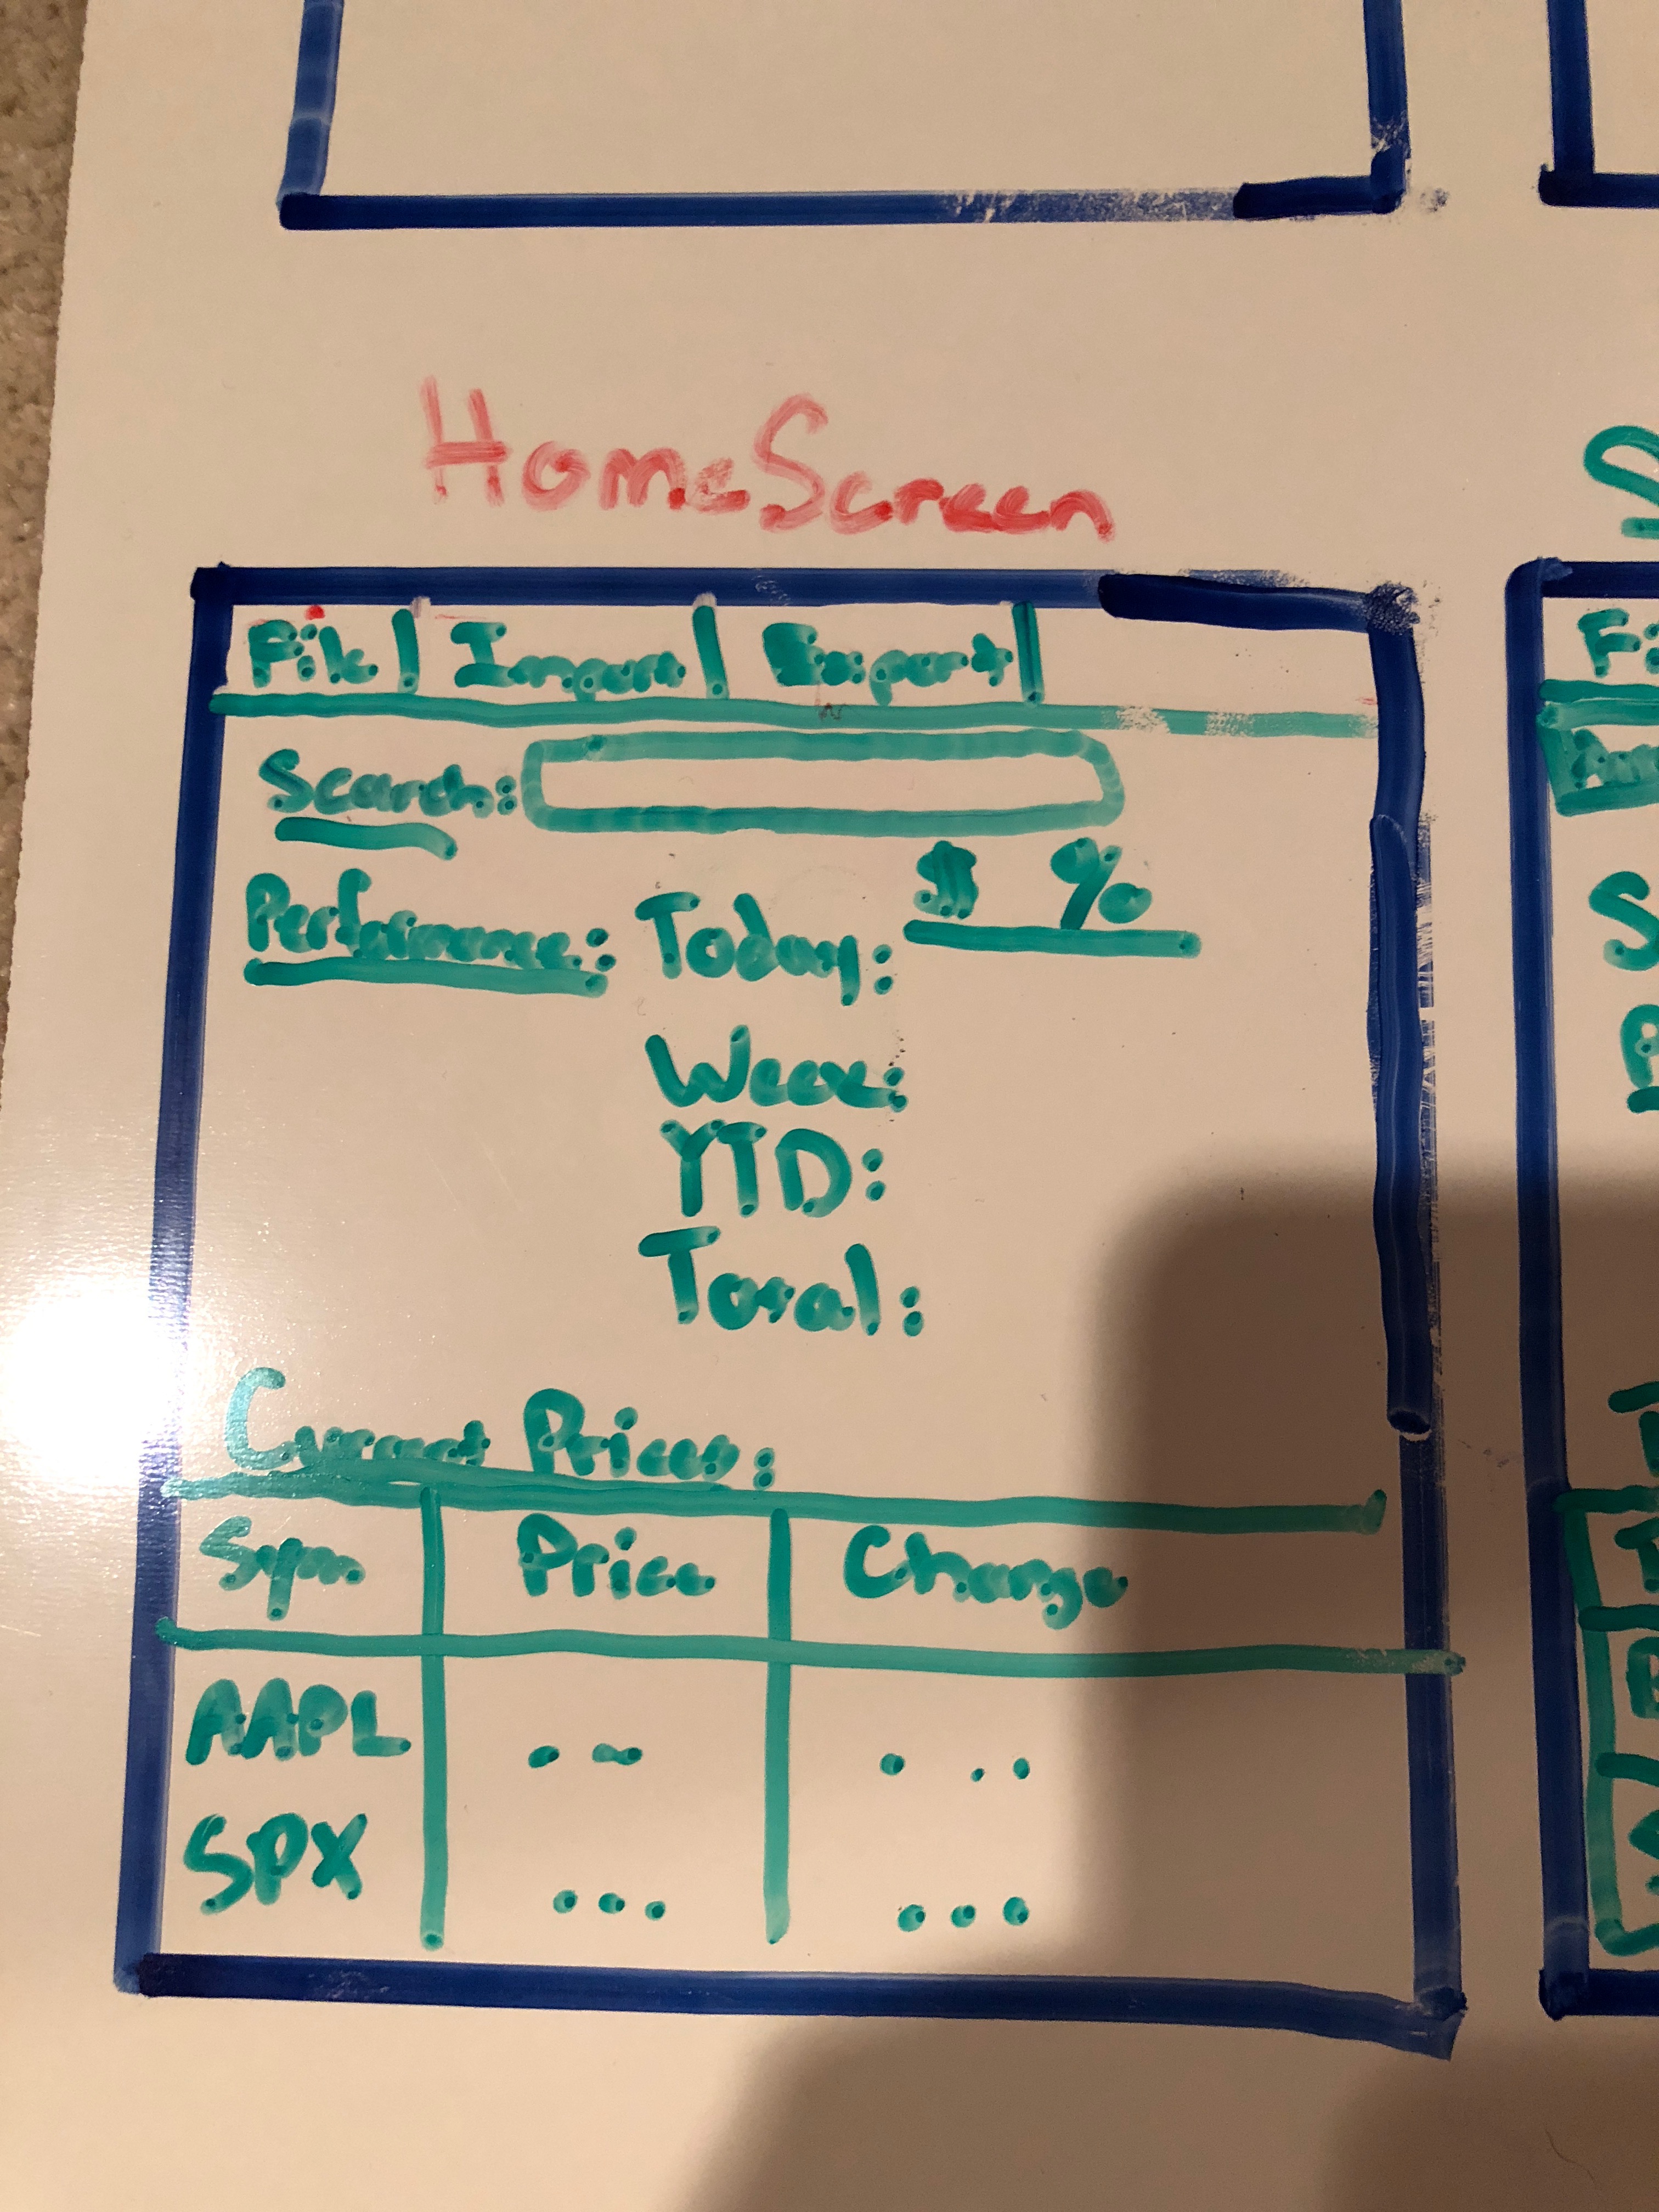 HomeScreen
File | Import | Export |
Search:
Performance: Today: $ %
Week:
YTD:
Total:
Current Prices:
Sym Price Change
AAPL . . . . . .
SPX . . . . . .